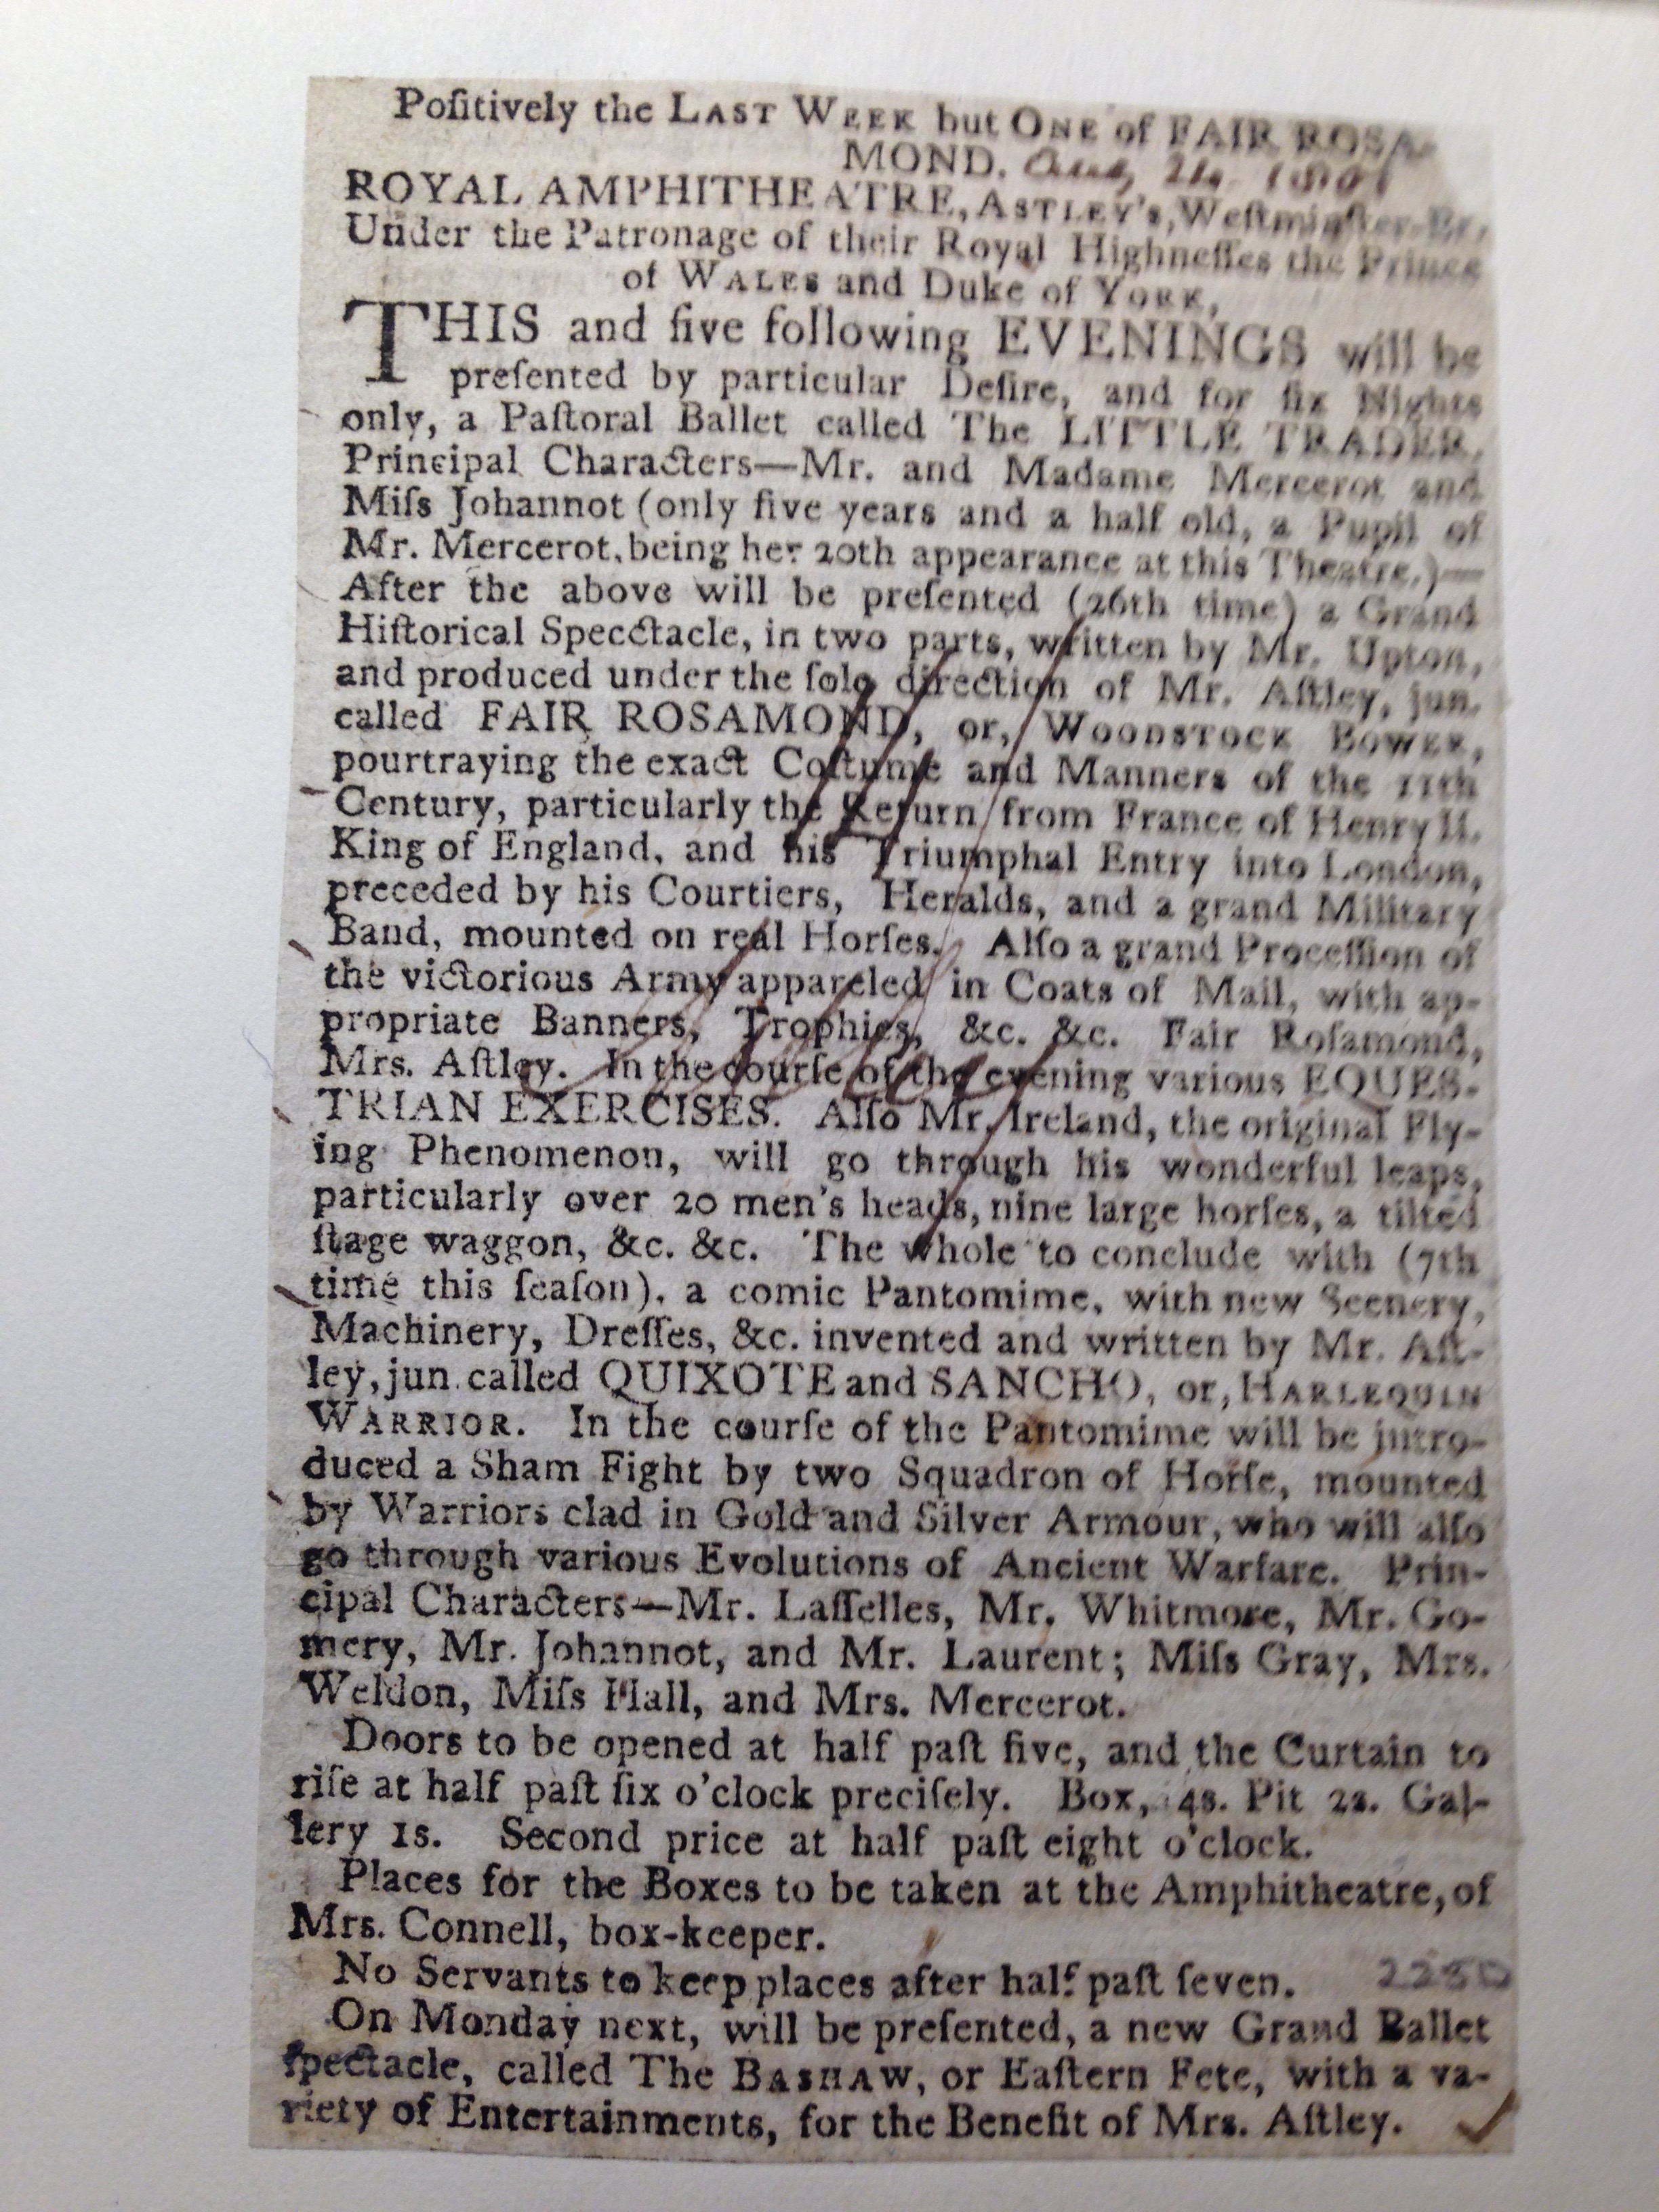 Poſitively the LAST WEEK but ONE of FAIR ROSA-
MOND.
ROYAL AMPHITHEATRE, ASTLEY's, Weſtminſter-Br,
Under the Patronage of their Royal Highneſſes the Prince
of WALES and Duke of YORK,
THIS and five following EVENINGS will be
preſented by particular Deſire, and for ſix Nights
only, a Paſtoral Ballet called The LITTLE TRADER,
Principal Characters—Mr. and Madame Mercerot and
Miſs Johannot (only five years and a half old, a Pupil of
Mr. Mercerot, being her 20th appearance at this Theatre.)—
After the above will be preſented (26th time) a Grand
Hiſtorical Specctacle, in two parts, written by Mr. Upton,
and produced under the ſole direction of Mr. Aſtley, jun.
called FAIR ROSAMOND, or, WOODSTOCK BOWER,
pourtraying the exact Coſtume and Manners of the 11th
Century, particularly the Return from France of Henry II.
King of England, and his Triumphal Entry into London,
preceded by his Courtiers, Heralds, and a grand Military
Band, mounted on real Horſes. Alſo a grand Proceſſion of
the victorious Army appareled in Coats of Mail, with ap-
propriate Banners, Trophies, &c. &c. Fair Roſamond,
Mrs. Aſtley. In the courſe of the evening various EQUES-
TRIAN EXERCISES. Alſo Mr. Ireland, the original Fly-
ing Phenomenon, will go through his wonderful leaps,
particularly over 20 men's heads, nine large horſes, a tilted
ſtage waggon, &c. &c. The whole to conclude with (7th
time this ſeaſon), a comic Pantomime, with new Scenery,
Machinery, Dreſſes, &c. invented and written by Mr. Aſt-
ley, jun. called QUIXOTE and SANCHO, or, HARLEQUIN
WARRIOR. In the courſe of the Pantomime will be intro-
duced a Sham Fight by two Squadron of Horſe, mounted
by Warriors clad in Gold and Silver Armour, who will alſo
go through various Evolutions of Ancient Warfare. Prin-
cipal Characters—Mr. Laſſelles, Mr. Whitmore, Mr. Go-
mery, Mr. Johannot, and Mr. Laurent; Miſs Gray, Mrs.
Weldon, Miſs Hall, and Mrs. Mercerot.
Doors to be opened at half paſt five, and the Curtain to
riſe at half paſt ſix o'clock preciſely. Box, 4s. Pit 2s. Gal-
lery 1s. Second price at half paſt eight o'clock.
Places for the Boxes to be taken at the Amphitheatre, of
Mrs. Connell, box-keeper.
No Servants to keep places after half paſt ſeven.
On Monday next, will be preſented, a new Grand Ballet
ſpectacle, called The BASHAW, or Eaſtern Fete, with a va-
riety of Entertainments, for the Benefit of Mrs. Aſtley.